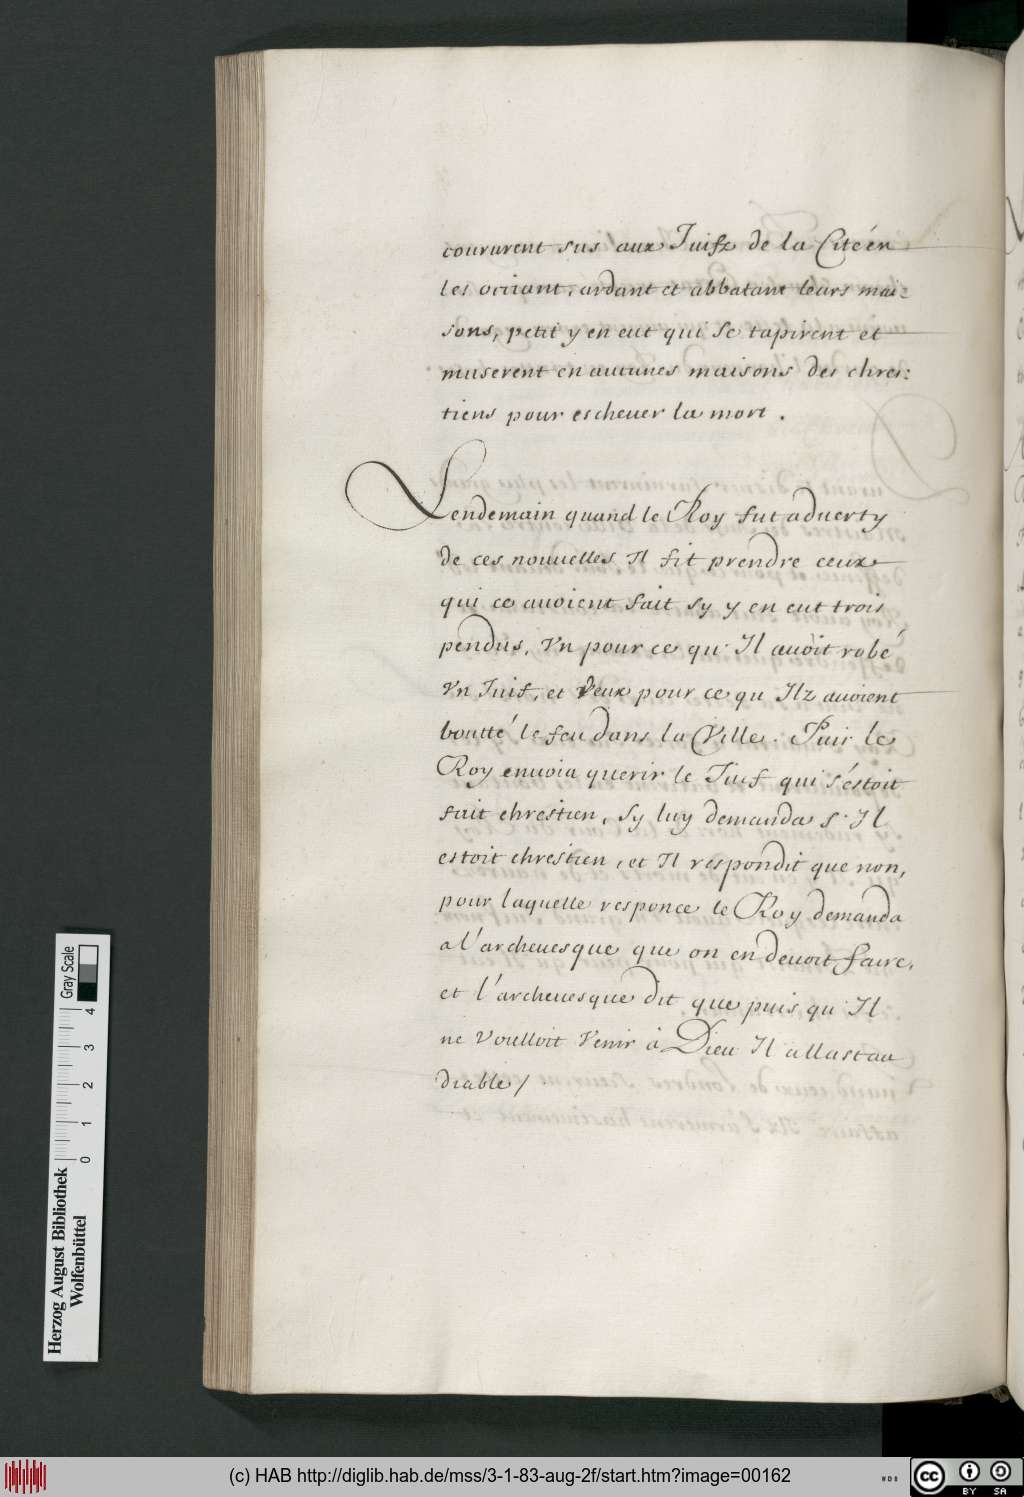 coururent sus aux Juifz de la Cité en
les occiant, ardant et abbatant leurs mai=
sons, petit y en eut qui se tapirent et
muserent en aucunes maisons des chres=
tiens pour escheuer la mort.
Lendemain quand le Roy fut aduerty
de ces nouuelles Il fit prendre ceux
qui ce auoient fait sy y en eut trois
pendus, Vn pour ce qu'Il auoit robé
Vn Juif, et deux pour ce qu Ilz auoient
boutté le feu dans la Ville. Puis le
Roy enuoia querir le Juif qui s'éstoit
fait chrestien, sy luy demanda s'Il
estoit chrestien, et Il respondit que non,
pour laquelle responce le Roy demanda
a l'archeuesque que on en deuoit faire,
et l'archeuesque dit que puis qu'Il
ne Voulloit Venir à Dieu Il allast au
diable/
Herzog August Bibliothek
Wolfenbüttel
0 1 2 3 4
Gray Scale
(c) HAB http://diglib.hab.de/mss/3-1-83-aug-2f/start.htm?image=00162
WDB
cc BY SA